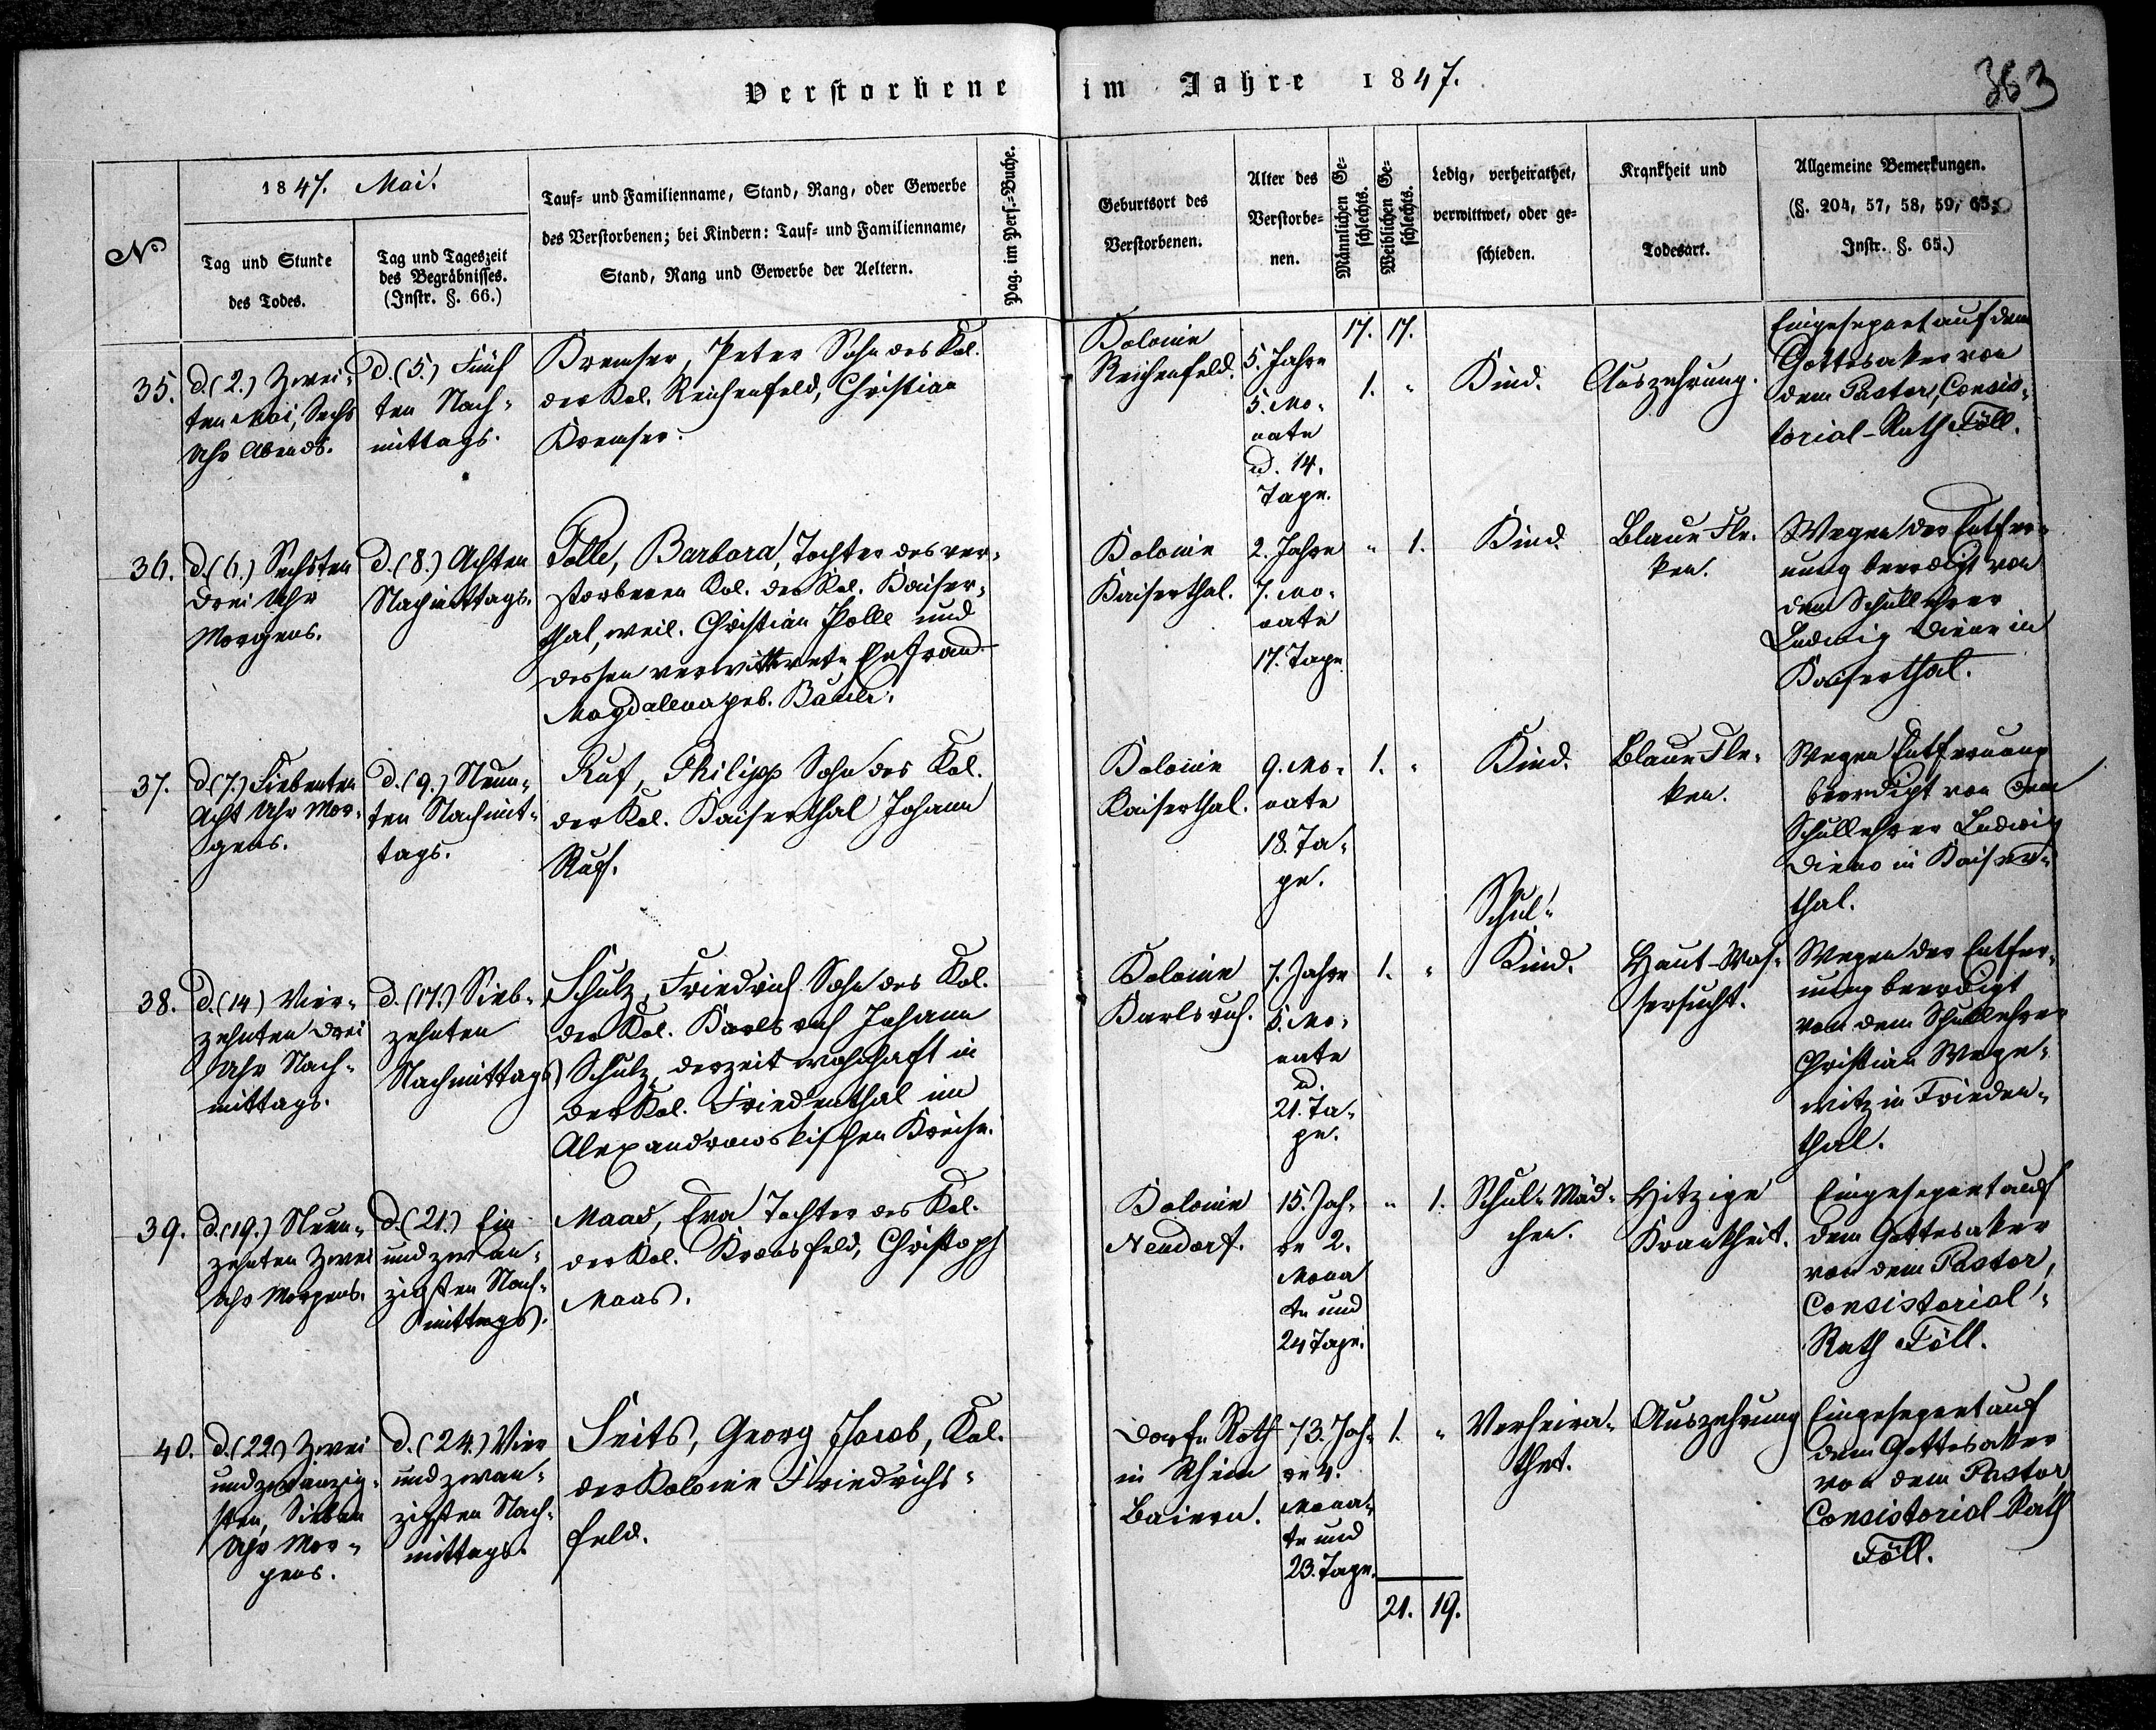 Verstorbene im Jahre 1847.
363
Nº
1847. Mai.
Tag und Stunde
des Todes.
Tag und Tageszeit
des Begräbnisses.
(Instr. §. 66.)
Tauf- und Familienname, Stand, Rang, oder Gewerbe
des Verstorbenen; bei Kindern: Tauf- und Familienname,
Stand, Rang und Gewerbe der Aeltern.
Pag. im Pers.-Buche.
Geburtsort des
Verstorbenen.
Alter des
Verstorbe-
nen.
Männlichen Ge-
schlechts.
Weiblichen Ge-
schlechts.
Ledig, verheirathet,
verwittwet, oder ge-
schieden.
Krankheit und
Todesart.
Allgemeine Bemerkungen.
(§. 204, 57, 58, 59, 65,
Instr. §. 65.)
17. 17.
35.
d. (2.) Zwei-
ten Mai, Sechs
Uhr Abends.
D. (5.) Fünf
ten Nach-
mittags.
Kremser, Peter Sohn des Kol.
der Kol. Reichenfeld, Christian
Kremser.
Kolonie
Reichenfeld.
5. Jahre
5. Mo-
nate
u. 14.
Tage.
1. "
Kind.
Auszehrung.
Eingesegnet auf dem
Gottesaker von
dem Pastor, Consis-
torial-Rath Föll.
36.
d. (6.) Sechsten
drei Uhr
Morgens.
D. (8.) Achten
Nachmittags.
Polle, Barbara, Tochter des ver-
storbenen Kol. der Kol. Kaiser-
thal, weil. Christian Polle und
dessen verwittwete Ehefrau
Magdalena geb. Bauer.
Kolonie
Kaiserthal.
2. Jahre
7. Mo-
nate
17. Tage
" 1.
Kind.
Blaue Fle-
ken.
Wegen der Entfer-
nung beerdigt von
dem Schullehrer
Ludwig Diener in
Kaiserthal.
37.
d (7.) Siebenten
Acht Uhr Mor-
gens.
d. (9.) Neun-
ten Nachmit-
tags.
Ruf, Philipp Sohn des Kol.
der Kol. Kaiserthal Johann
Ruf.
Kolonie
Kaiserthal.
9. Mo-
nate
18. Ta-
ge.
1. "
Kind.
Blaue Fle-
ken.
Wegen Entfernung
beerdigt von dem
Schullehrer Ludwig
Diener in Kaiser-
thal.
38.
d. (14) Vier-
zehnten drei
Uhr Nach-
mittags.
d. (17.) Sieb-
zehnten
Nachmittags
Schulz, Friedrich Sohn des Kol.
der Kol. Karlsruh Johann
Schulz, derzeit wohnhaft in
der Kol. Friedenthal im
Alexandrowskischen Kreise.
Kolonie
Karlsruh.
7. Jahre
5. Mo-
nate
u.
21. Ta-
ge.
1. "
Schul-
Kind.
Haut-Was-
sersucht.
Wegen der Entfer-
nung beerdigt
von dem Schullehrer
Christian Wege-
witz in Frieden-
thal.
39.
d. (19.) Neun-
zehnten Zwei
Uhr Morgens.
d. (21.) Ein
und zwan-
zigsten Nach-
mittags.
Maas, Eva Tochter des Kol.
der Kol. Kronsfeld, Christoph
Maas.
Kolonie
Neudorf.
15. Jah-
re 2.
Mona
te und
24 Tage.
" 1.
Schul-Mäd-
chen.
Hitzige
Krankheit.
Eingesegnet auf
dem Gottesaker
von dem Pastor,
Consistorial-
Rath Föll.
40.
d. (22.) Zwei
und zwanzig-
sten, Sieben
Uhr Mor-
gens.
d. (24.) Vier
und zwan-
zigsten Nach-
mittags.
Seits, Georg Jacob, Kol.
der Kolonie Friedrichs-
feld.
Dorfe Roth
in Rhein
Baiern.
73. Jah-
re 4.
Mona-
te und
23. Tage.
1. "
Verheira-
thet.
Auszehrung
Eingesegnet auf
dem Gottesaker
von dem Pastor
Consistorial-Rath
Föll.
21. 19.